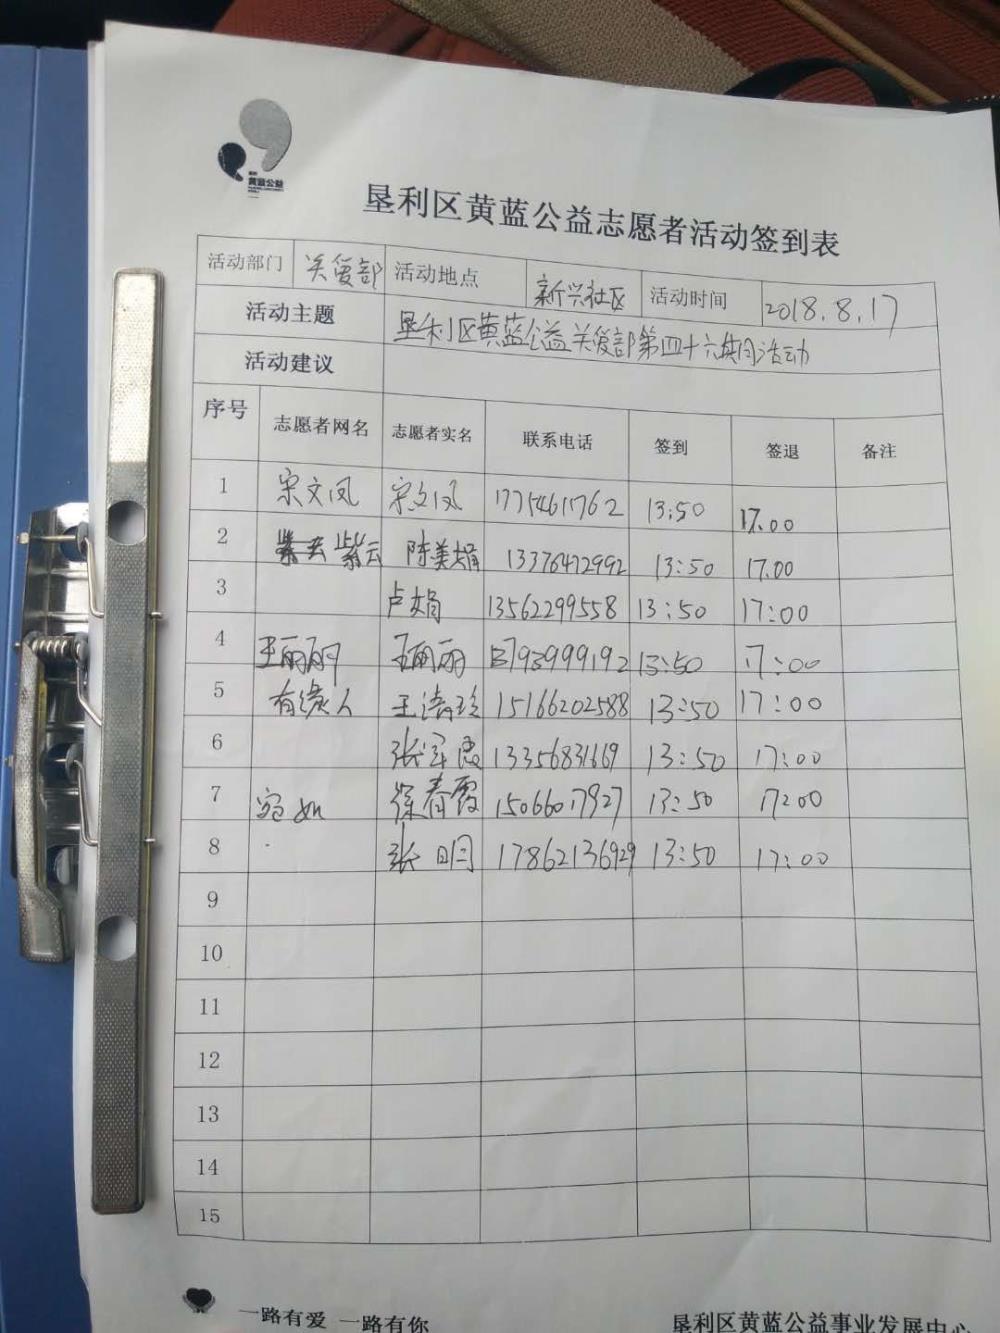 黄蓝公益
垦利区黄蓝公益志愿者活动签到表
活动部门 关爱部 活动地点 新兴社区 活动时间 2018.8.17
活动主题 垦利区黄蓝公益关爱部第四十六期活动
活动建议
序号 志愿者网名 志愿者实名 联系电话 签到 签退 备注
1 宋文凤 宋文凤 17754611762 13:50 17.00
2 紫云 陈美娟 13376472992 13:50 17.00
3 卢娟 13562299558 13:50 17:00
4 王丽丽 王丽丽 13793999192 13:50 17:00
5 有缘人 王清玲 15166202588 13:50 17:00
6 张军霞 13356831669 13:50 17:00
7 宛如 徐春霞 15066017927 13:50 17:00
8 张明 17862136929 13:50 17:00
9
10
11
12
13
14
15
一路有爱 一路有你
垦利区黄蓝公益事业发展中心